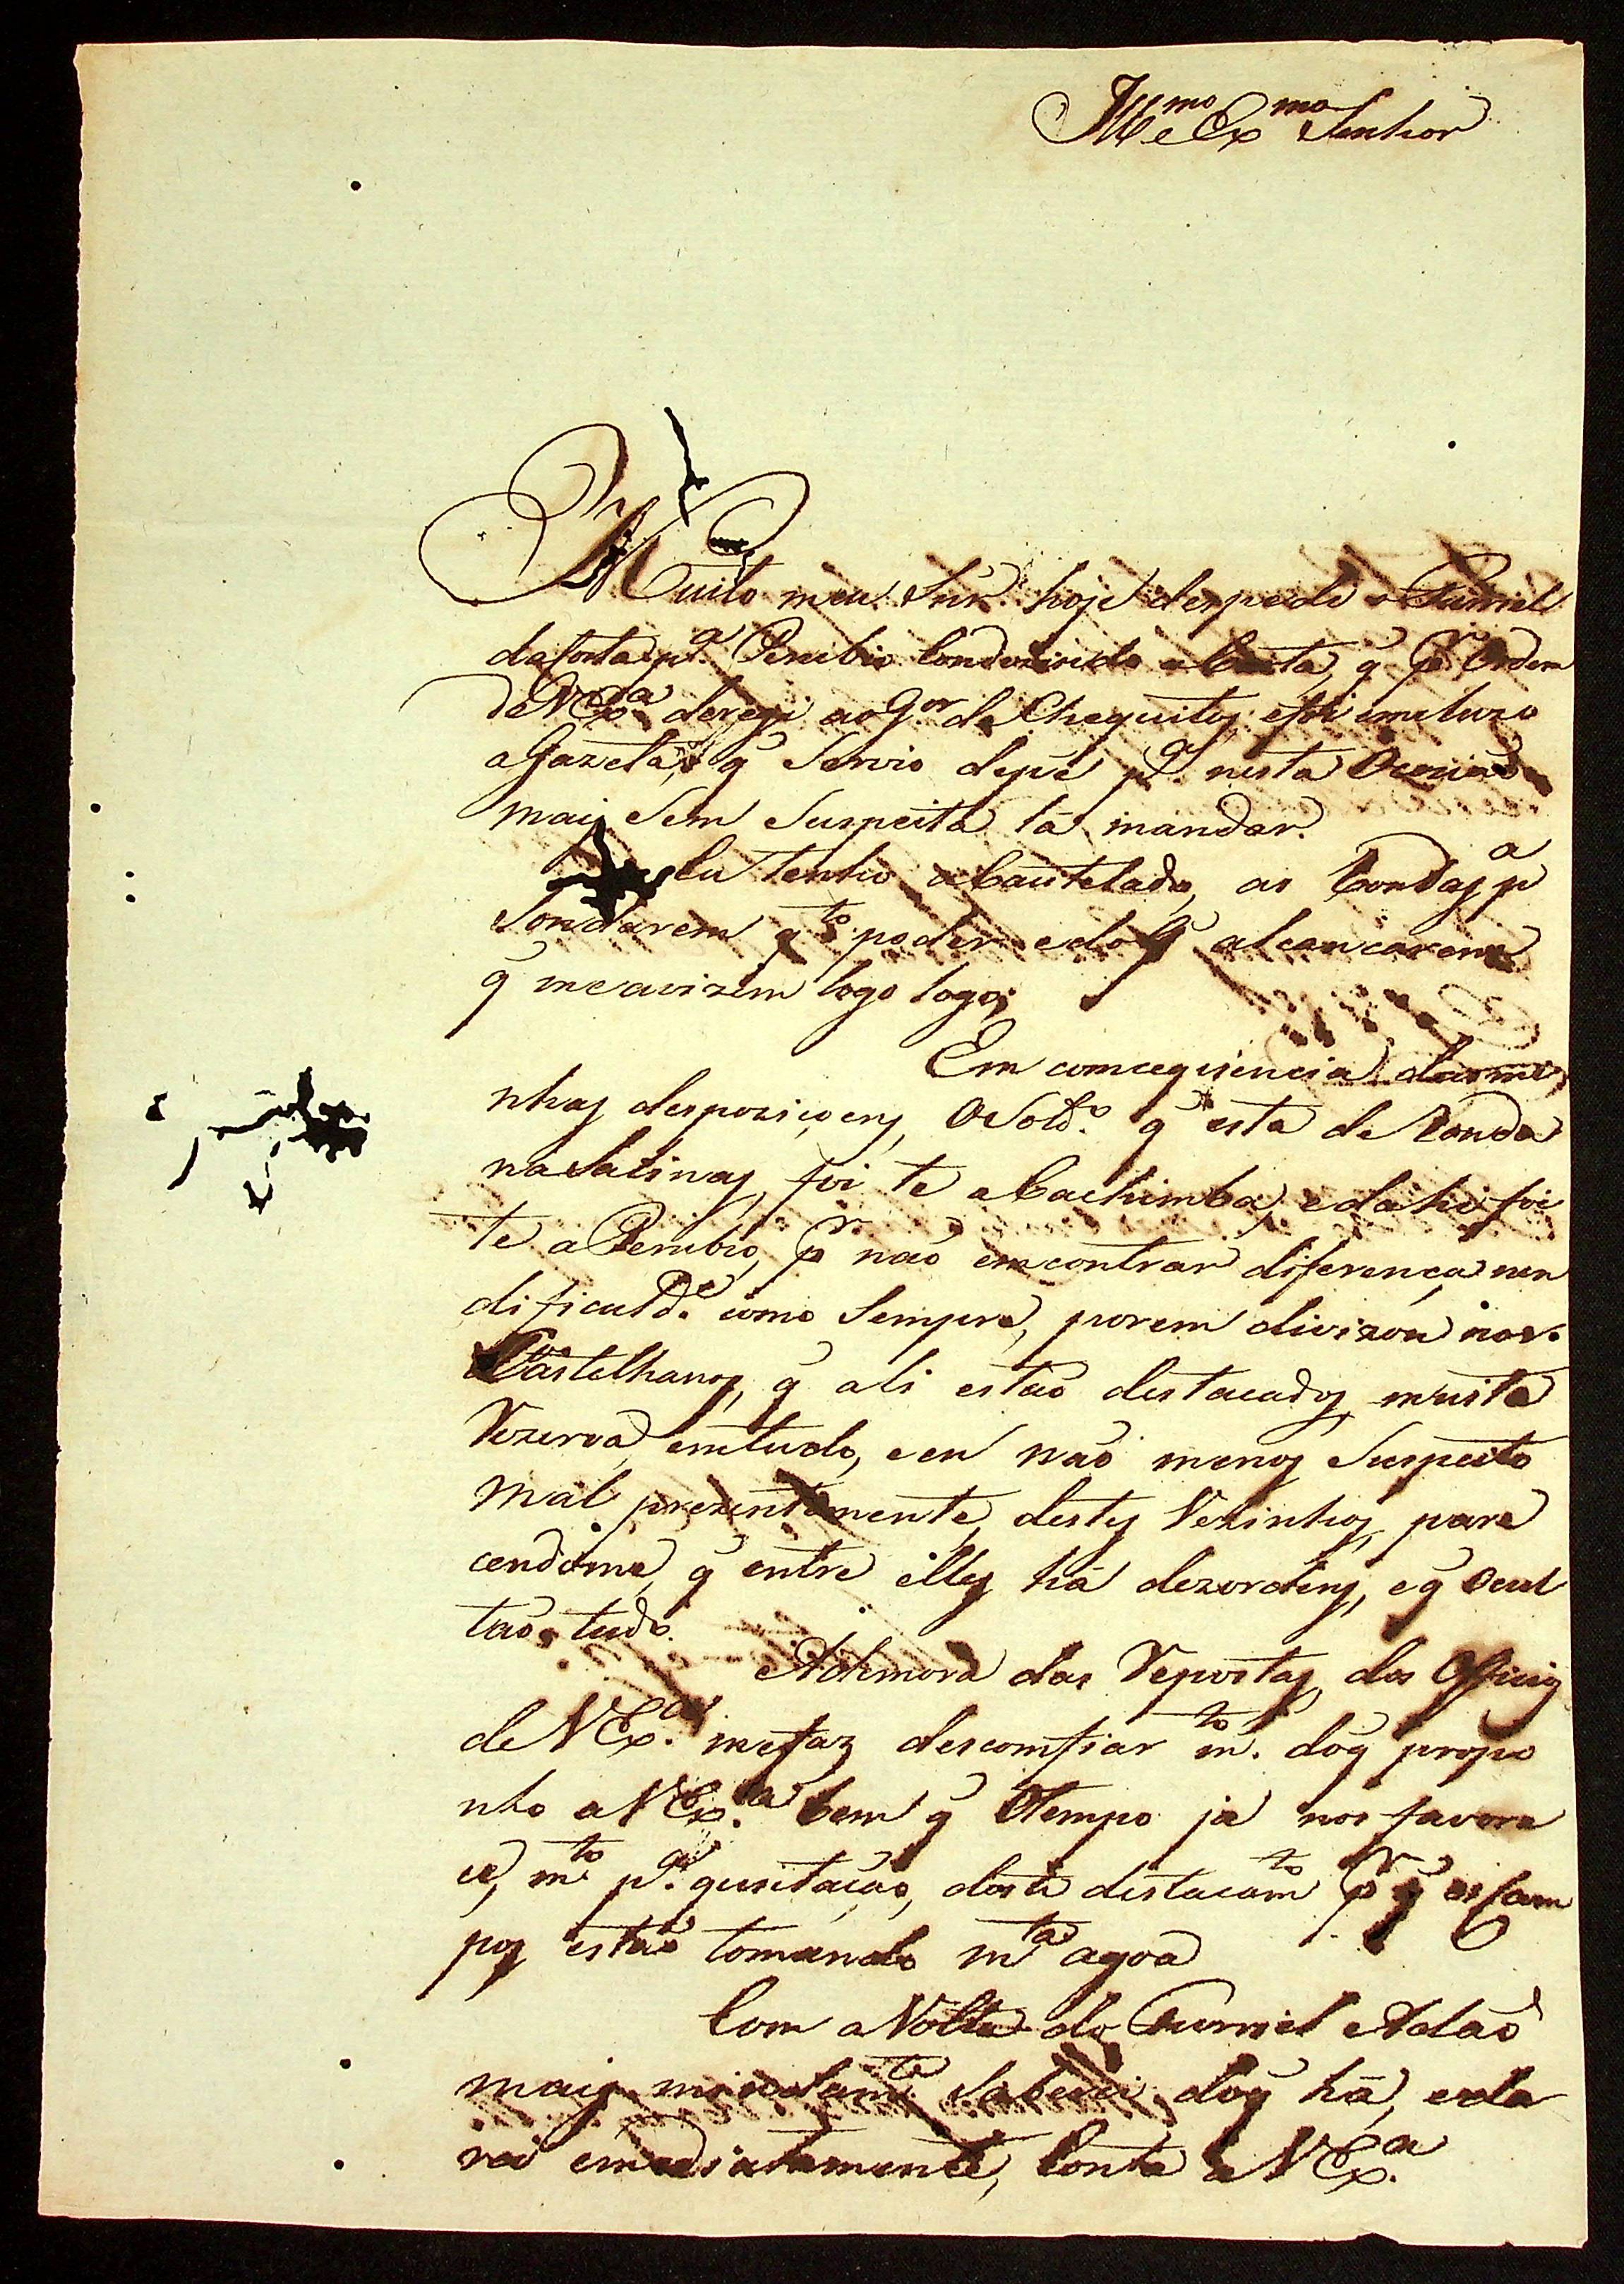 Ill.mo e Ex.mo Senhor
Muito meu Snr. hoje despedi o Furriel
da Costa p.a Perubio Conduzindo a Carta, q̃ p.r Ordem
de V Ex.a deregi ao G.or de Chequitos, e foi emcluzo
a Gazeta, q̃ Servio depé p.a nesta
mais Sem Suspeita lá mandar.
Eu tenho aCautelado, as Rondas p.a
Sondarem q.to poder e do q̃ alcancarem
q̃ me avizem logo logo;
Em comcequencia das mi
nhas despoziçoens, O Sold.o q̃ esta de Ronda
na Salinas, foi te a Cachimba, e dahi foi
te a Perubio, p.r naõ emcontrar diferença nen
dificuld.e como Sempre, porem divizou nos
Castelhanos, q̃ ali estaõ destacados, muita
Rezerva, emtudo, e eu naõ menos Suspeito
mal prezentemente, destes Vezinhos, pare
cendome, q̃ entre elles há dezordens, e q̃ Ocul
taõ tudo.
A demora das Repostas, dos Officios
de V Ex.a me faz descomfiar m.to doq̃ propo
nho a V Ex.a bem q̃ O tempo já nos favore
ce, m.to p.a quietaçaõ, deste destacam.to p.r q̃ os Cam
pos estaõ tomando m.ta agoa
Com a Volta do Furriel Adaõ
mais miudam.te Saberei doq̃ há, e da
rei emediatamente, Conta a V Ex.a